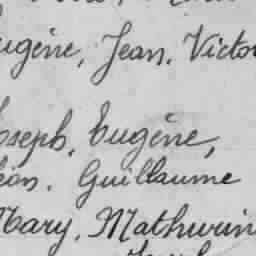 ugène, Jean, Victo
oseph, Eugène,
éon, Guillaume
Mary, Mathurin